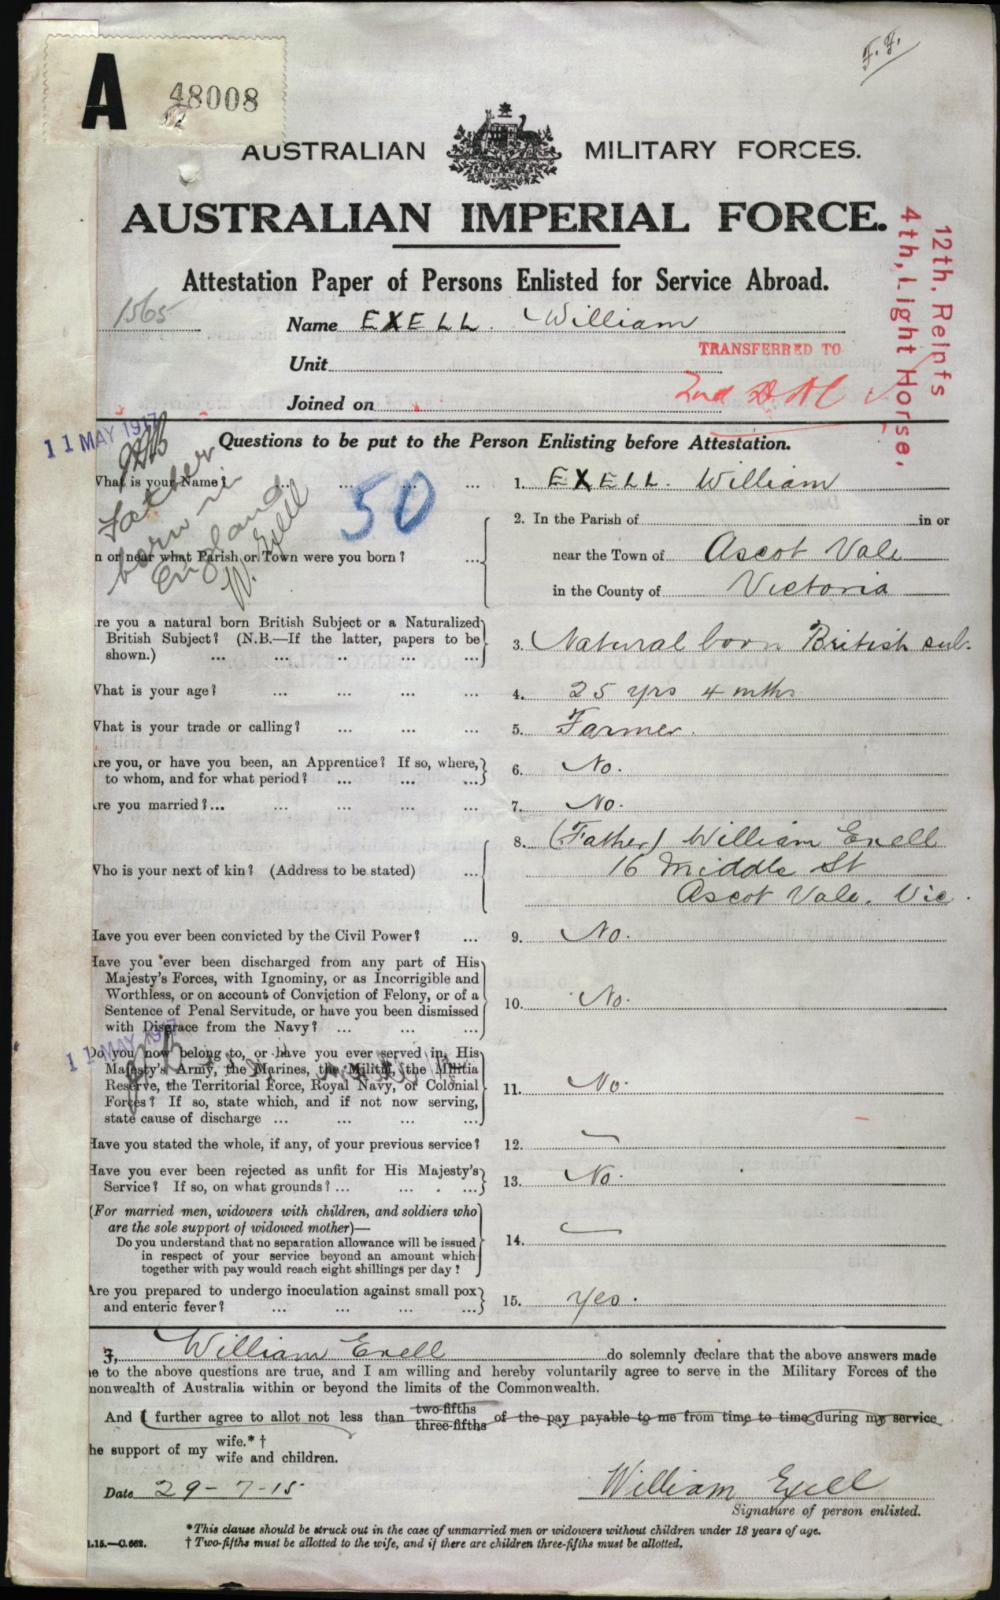 F.F.
A 48008
AUSTRALIAN MILITARY FORCES.
AUSTRALIAN IMPERIAL FORCE.
12th, Reinfs
4th, Light Horse.
Attestation Paper of Persons Enlisted for Service Abroad.
1565
Name EXELL. William
Unit
TRANSFERRED TO
Joined on
2nd
11 MAY 1917
Questions to be put to the Person Enlisting before Attestation.
What is your Name? ... ... ... ... 1. EXELL. William
Father
born in
England
W. Exell
50
2. In the Parish of in or
n or near what Parish or Town were you born? ... near the Town of Ascot Vale
in the County of Victoria
re you a natural born British Subject or a Naturalized
British Subject? (N.B.—If the latter, papers to be
shown.) ... ... ... ... ...
3. Natural born British sub.
What is your age? ... ... ... ... 4. 25 yrs 4 mths
What is your trade or calling? ... ... ... 5. Farmer.
re you, or have you been, an Apprentice? If so, where,
to whom, and for what period? ... ... ...
6. No.
re you married?... ... ... ... 7. No.
8. (Father) William Exell
Who is your next of kin? (Address to be stated) ... 16 Middle St
Ascot Vale. Vic.
Have you ever been convicted by the Civil Power? ... 9. No.
Have you ever been discharged from any part of His
Majesty's Forces, with Ignominy, or as Incorrigible and
Worthless, or on account of Conviction of Felony, or of a
Sentence of Penal Servitude, or have you been dismissed
with Disgrace from the Navy? ... ... ...
10. No.
11 MAY 1917
Do you now belong to, or have you ever served in, His
Majesty's Army, the Marines, the Militia, the Militia
Reserve, the Territorial Force, Royal Navy, or Colonial
Forces? If so, state which, and if not now serving,
state cause of discharge ... ... ... ...
11. No.
Have you stated the whole, if any, of your previous service? 12. —
Have you ever been rejected as unfit for His Majesty's
Service? If so, on what grounds? ... ... . ...
13. No.
(For married men, widowers with children, and soldiers who
are the sole support of widowed mother)—
Do you understand that no separation allowance will be issued
in respect of your service beyond an amount which
together with pay would reach eight shillings per day?
14. —
Are you prepared to undergo inoculation against small pox
and enteric fever? ... ... ... ...
15. Yes.
I, William Exell do solemnly declare that the above answers made
e to the above questions are true, and I am willing and hereby voluntarily agree to serve in the Military Forces of the
monwealth of Australia within or beyond the limits of the Commonwealth.
And I further agree to allot not less than two-fifths three-fifths of the pay payable to me from time to time during my service
he support of my wife.*†
wife and children.
Date 29-7-15 William Exell
Signature of person enlisted.
*This clause should be struck out in the case of unmarried men or widowers without children under 18 years of age.
.15.—C.662. † Two-fifths must be allotted to the wife, and if there are children three-fifths must be allotted.